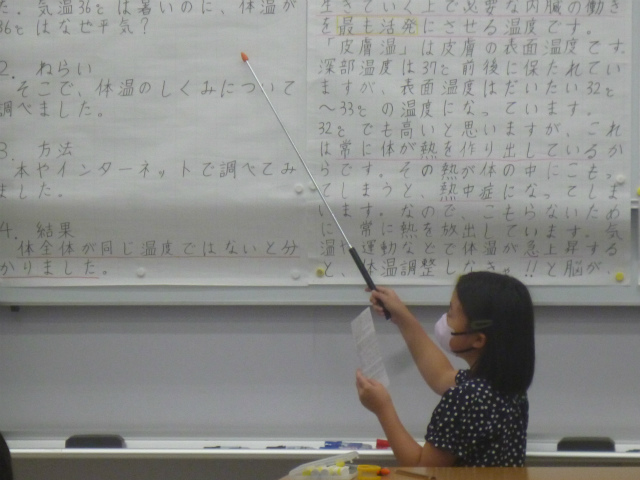 た。気温36℃は暑いのに、体温が
36℃はなぜ平気?
2. ねらい
そこで、体温のしくみについて
調べました。
3. 方法
本やインターネットで調べてみ
ました。
4. 結果
体全体が同じ温度ではないと分
かりました。
生きていく上で必要な内臓の働き
を最も活発にさせる温度です。
「皮膚温」は皮膚の表面温度です。
深部温度は37℃前後に保たれてい
ますが、表面温度はだいたい32℃
〜33℃の温度になっています。
32℃でも高いと思いますが、これ
は常に体が熱を作り出しているか
らです。その熱が体の中にこもっ
てしまうと、熱中症になってしま
います。なので、こもらないため
に、常に熱を放出しています。気
温や運動などで体温が急上昇する
と、体温調整しなきゃ!!と脳が、